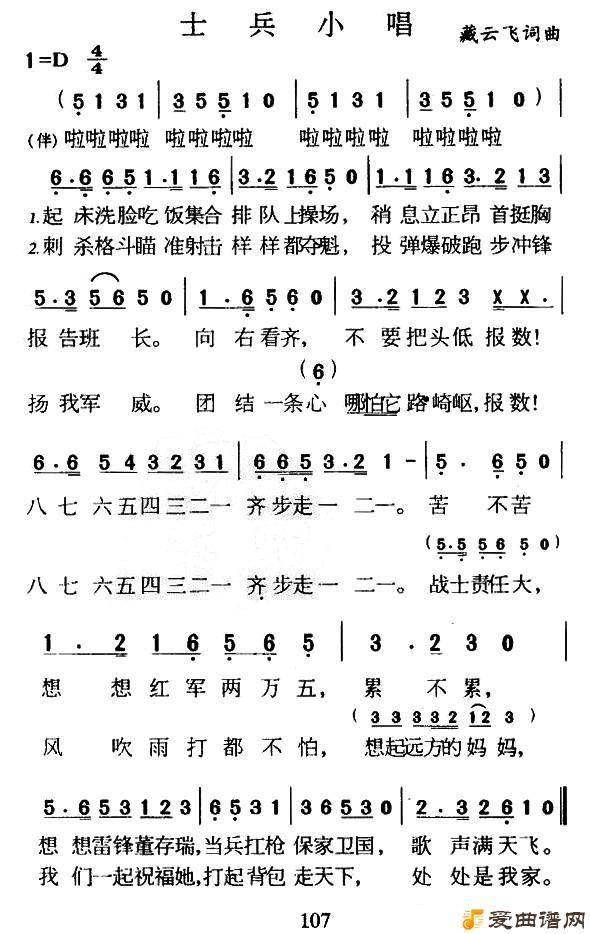 士兵小唱
藏云飞词曲
1=D 4/4
(5131 | 35510 | 5131 | 35510) |
(伴)啦啦啦啦 啦啦啦啦 啦啦啦啦 啦啦啦啦
6·6651·116 | 3·21650 | 1·1163·213 |
1.起床洗脸吃饭集合排队上操场，稍息立正昂首挺胸
2.刺杀格斗瞄准射击样样都夺魁，投弹爆破跑步冲锋
5·35650 | 1·6560 | 3·2123 XX· |
报告班长。向右看齐，不要把头低报数!
(6)
扬我军威。团结一条心哪怕它路崎岖,报数!
6·6 543231 | 6653·2 1- | 5· 650
八七六五四三二一 齐步走一二一。苦不苦
(5·5 556 50)
八七六五四三二一 齐步走一二一。战士责任大，
1·216565 | 3·230 |
想想红军两万五，累不累，
(33332123)
风吹雨打都不怕，想起远方的妈妈，
5·653123 | 6531 | 36530 | 2·32610
想想雷锋董存瑞,当兵扛枪保家卫国，歌声满天飞。
我们一起祝福她,打起背包走天下，处处是我家。
107
爱曲谱网